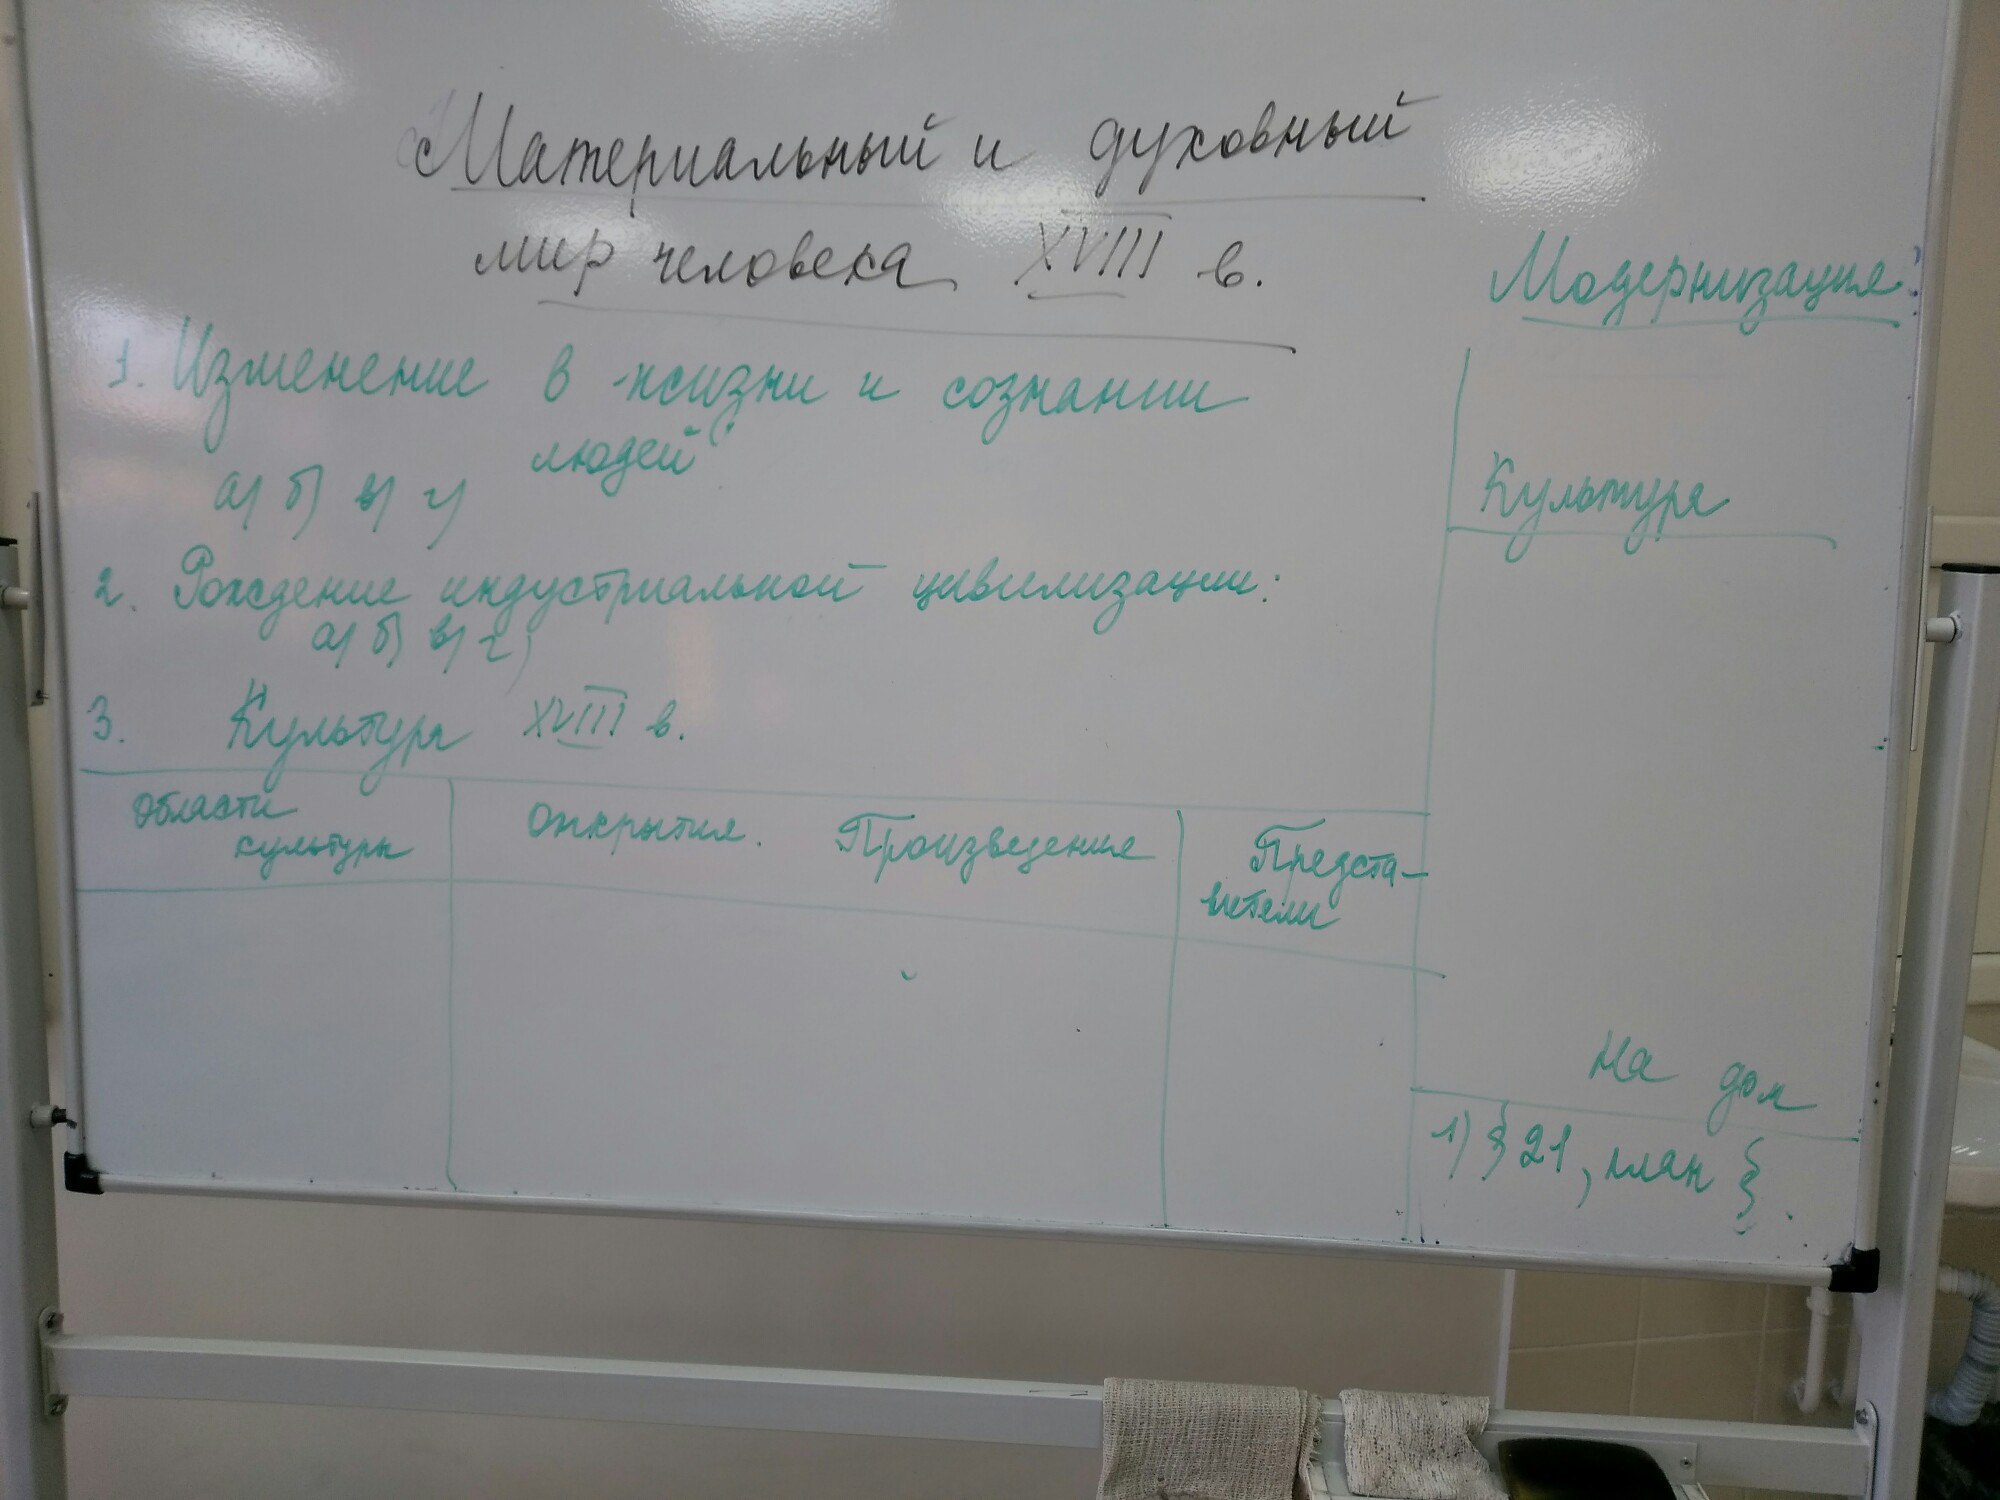 Материальный и духовный
мир человека XVIII в.
1. Изменение в жизни и сознании
людей
а) б) в) г)
2. Рождение индустриальной цивилизации:
а) б) в) г)
3. Культура XVIII в.
Области
культуры
Открытия. Произведения
Предста-
вители
Модернизация:
Культура
На дом
1) § 21, план }